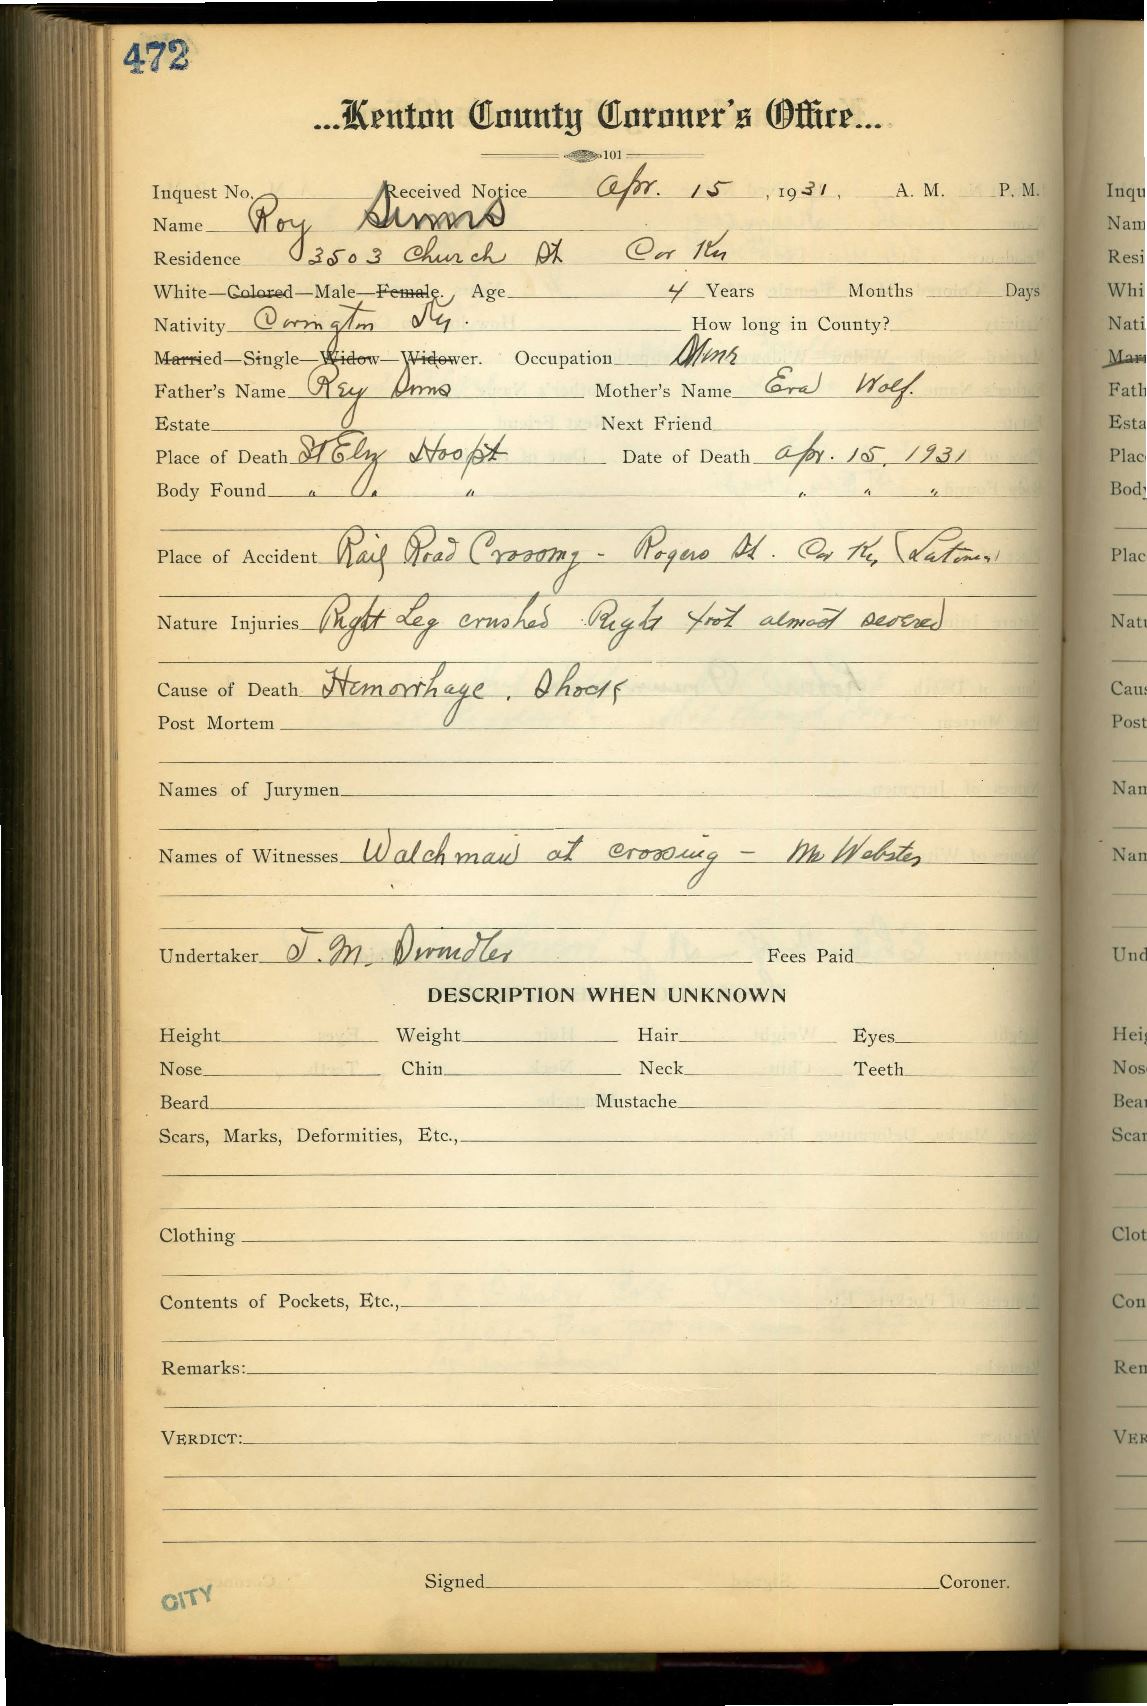 472
...Kenton County Coroner's Office...
101
Inquest No. Received Notice Apr. 15, 1931, A. M. P. M.
Name Roy Simms
Residence 3503 Church St Cov Ky
White—Colored—Male—Female. Age 4 Years Months Days
Nativity Covington Ky. How long in County?
Married—Single—Widow—Widower. Occupation None
Father's Name Roy Sims Mother's Name Eva Wolf.
Estate Next Friend
Place of Death St Eliz Hospt Date of Death Apr. 15, 1931
Body Found " " " " " "
Place of Accident Rail Road Crossing - Rogers St. Cov Ky (Latonia)
Nature Injuries Right Leg crushed Right foot almost severed
Cause of Death Hemorrhage. Shock
Post Mortem
Names of Jurymen
Names of Witnesses Watchman at crossing - Mr Webster
Undertaker J. M. Swindler Fees Paid
DESCRIPTION WHEN UNKNOWN
Height Weight Hair Eyes
Nose Chin Neck Teeth
Beard Mustache
Scars, Marks, Deformities, Etc.,
Clothing
Contents of Pockets, Etc.,
Remarks:
VERDICT:
Signed Coroner.
CITY
Inqu
Nam
Resi
Whi
Nati
Marr
Fath
Esta
Plac
Body
Plac
Natu
Caus
Post
Nam
Nam
Und
Heig
Nose
Bear
Scar
Clot
Con
Rem
VER